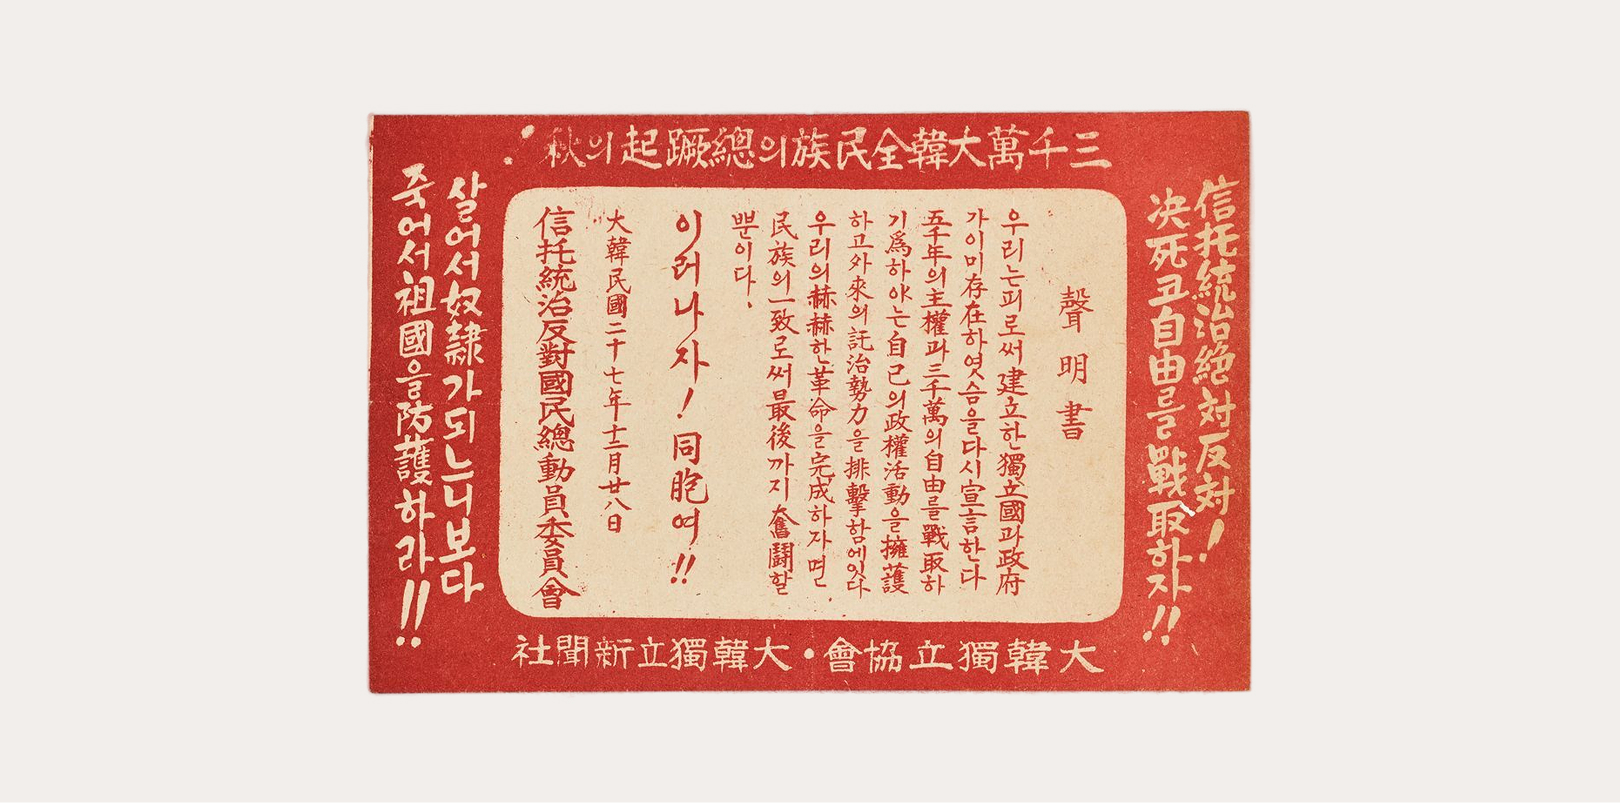 三千萬大韓全民族의總蹶起의秋!
信托統治絕対反対!
决死코自由를戰取하자!!
聲明書
우리는피로써建立한獨立國과政府
가이미存在하엿슴을다시宣言한다
五千年의主權과三千萬의自由를戰取하
기爲하야는自己의政權活動을擁護
하고外來의託治勢力을排擊함에잇다
우리의赫赫한革命을完成하자면
民族의一致로써最後까지奮鬪할
뿐이다、
이러나자!同胞여!!
大韓民國二十七年十二月廿八日
信托統治反對國民總動員委員會
살어서奴隷가되느니보다
죽어서祖國을防護하라!!
大韓獨立協會・大韓獨立新聞社